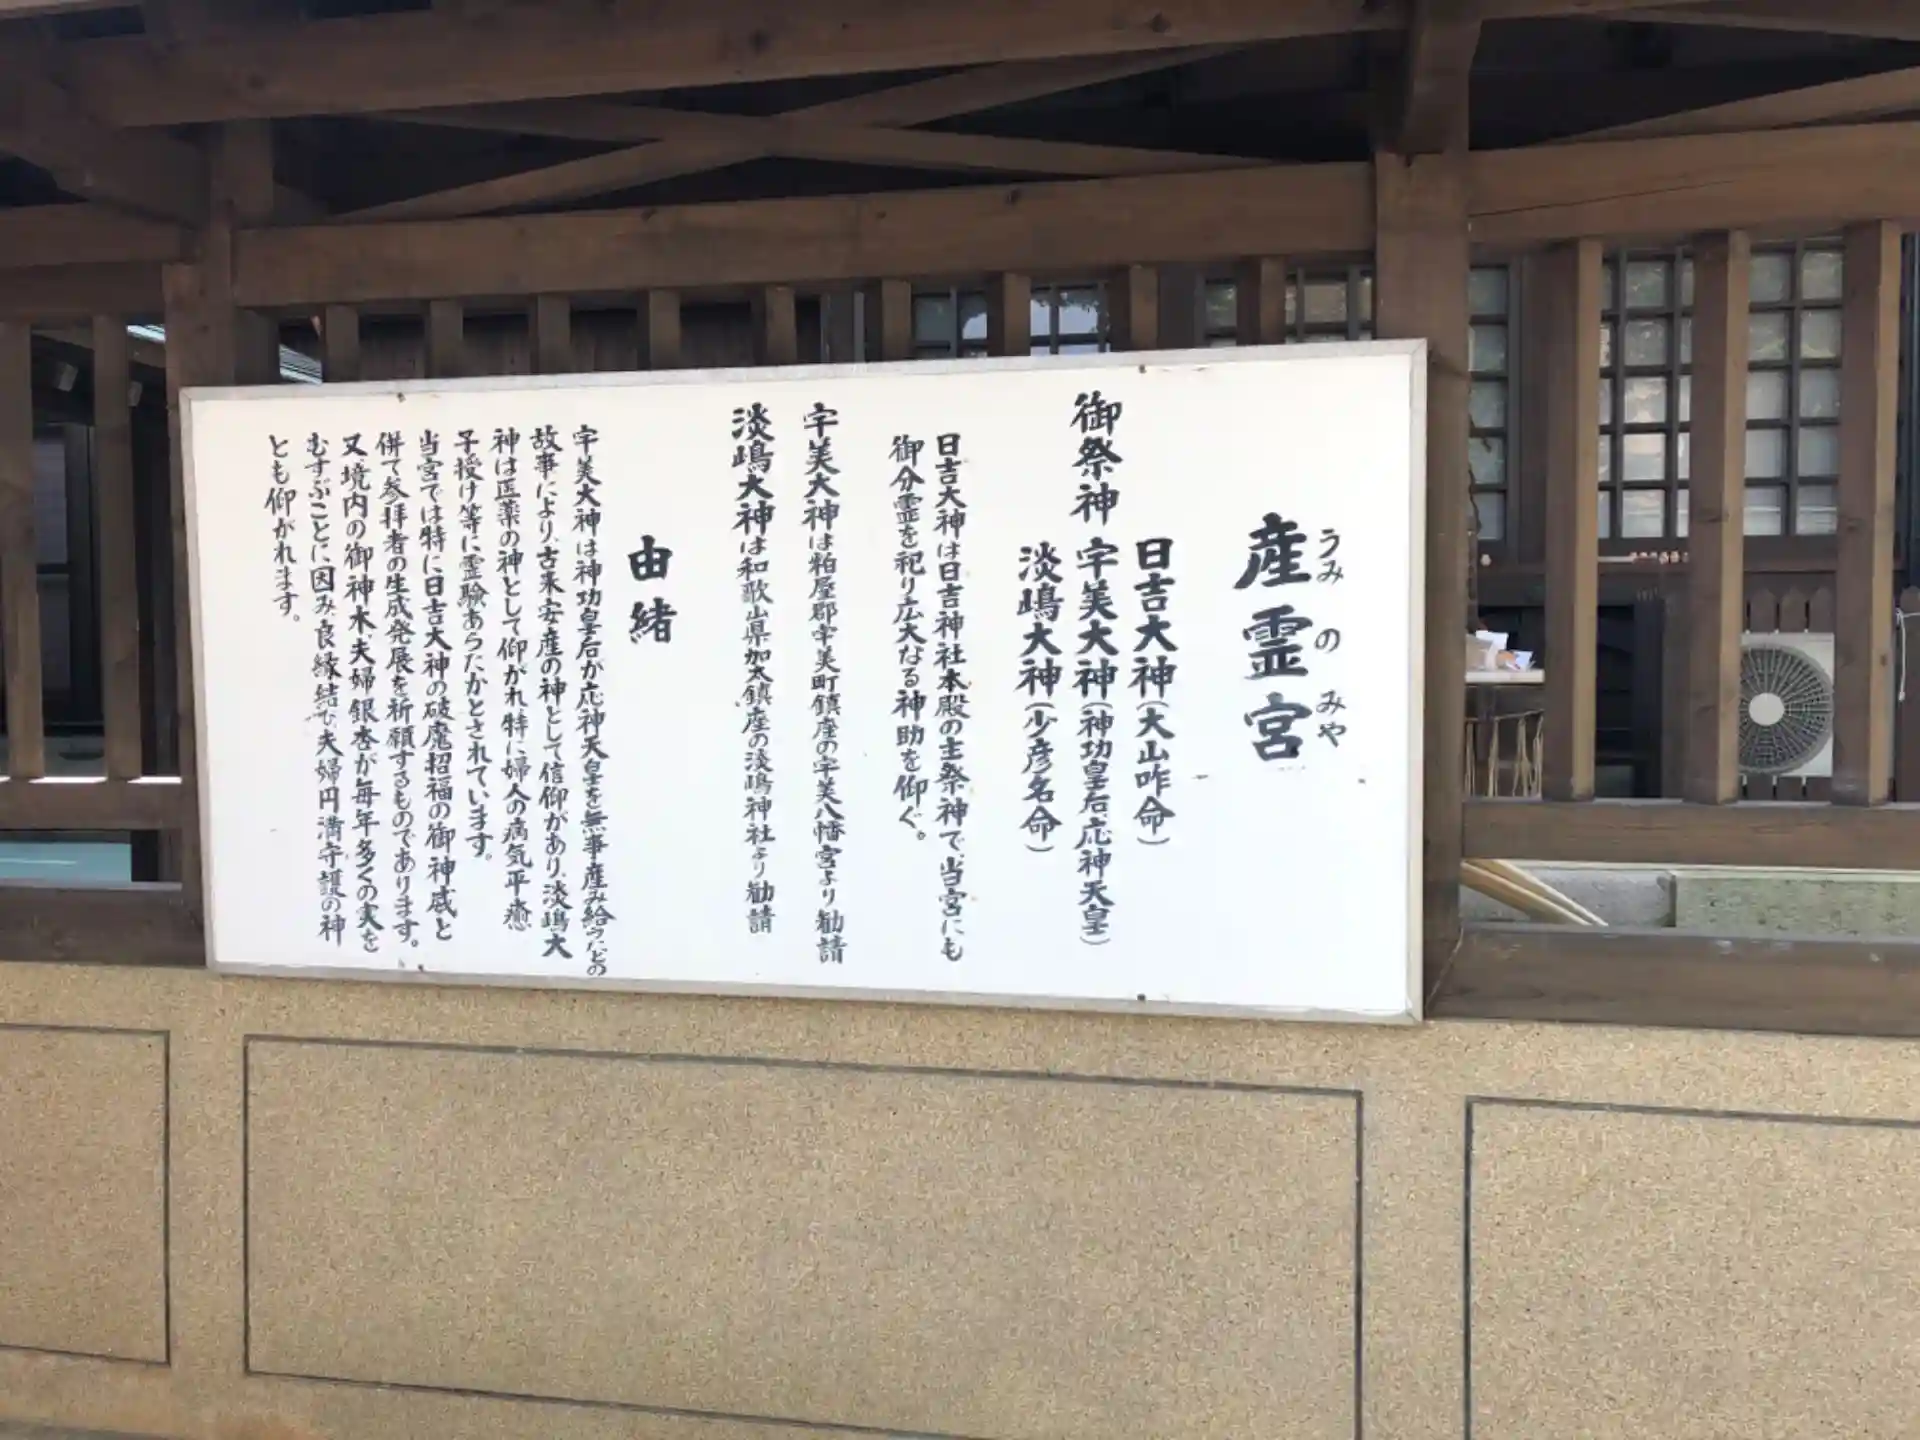 産霊宮
うみのみや
御祭神
日吉大神(大山咋命)
宇美大神(神功皇后、応神天皇)
淡嶋大神(少彦名命)
日吉大神は日吉神社本殿の主祭神で、当宮にも
御分霊を祀り広大なる神助を仰ぐ。
宇美大神は粕屋郡宇美町鎮座の宇美八幡宮より勧請
淡嶋大神は和歌山県加太鎮座の淡嶋神社より勧請
由緒
宇美大神は神功皇后が応神天皇を無事産み給うたとの
故事により、古来安産の神として信仰があり、淡嶋大
神は医薬の神として仰がれ、特に婦人の病気平癒
子授け等に霊験あらたかとされています。
当宮では特に日吉大神の破魔招福の御神威と
併て参拝者の生成発展を祈願するものであります。
又、境内の御神木、夫婦銀杏が毎年多くの実を
むすぶことに因み、良縁結び、夫婦円満守護の神
とも仰がれます。